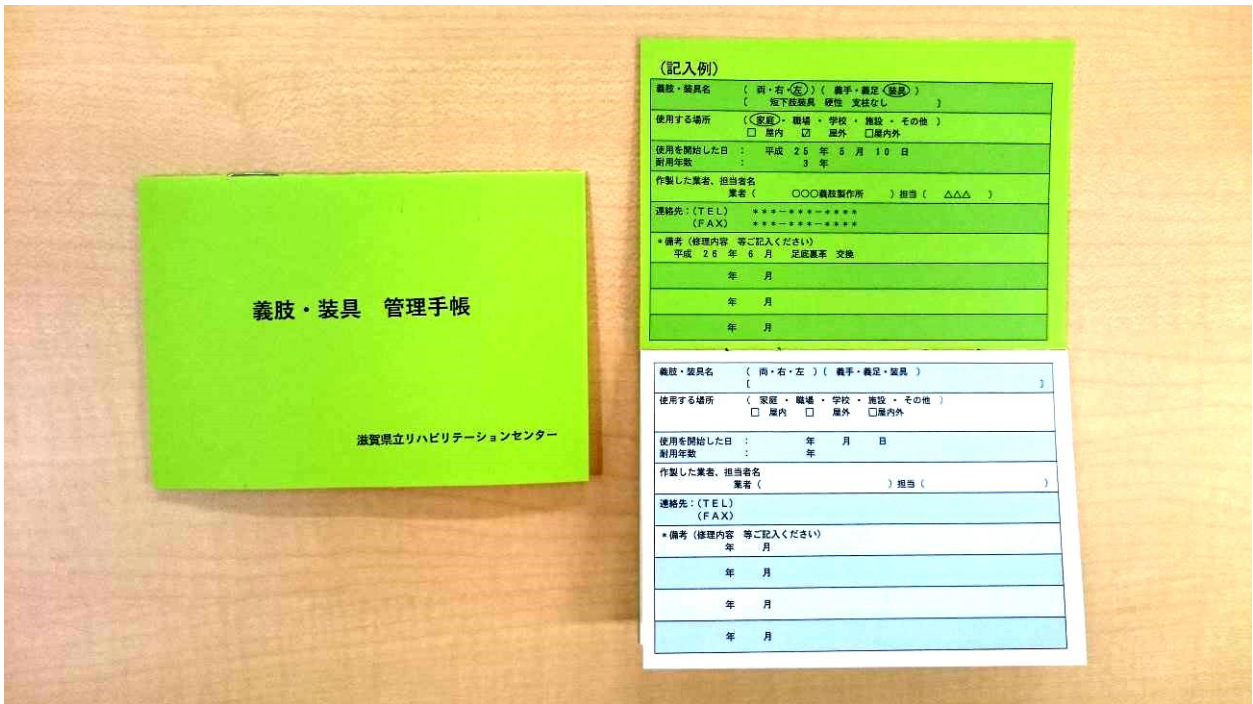 義肢・装具 管理手帳
滋賀県立リハビリテーションセンター
(記入例)
義肢・装具名 ( 両・右・左 ) ( 義手・義足・装具 )
[ 短下肢装具 硬性 支柱なし ]
使用する場所 ( 家庭・ 職場 ・ 学校 ・ 施設 ・ その他 )
□ 屋内 ☑ 屋外 □屋内外
使用を開始した日 : 平成 25 年 5 月 10 日
耐用年数 : 3 年
作製した業者、担当者名
業者 ( ○○○義肢製作所 ) 担当 ( △△△ )
連絡先:(TEL) ***-***-****
(FAX) ***-***-****
*備考 (修理内容 等ご記入ください)
平成 26 年 6 月 足底裏革 交換
年 月
年 月
年 月
義肢・装具名 ( 両・右・左 ) ( 義手・義足・装具 )
[ ]
使用する場所 ( 家庭 ・ 職場 ・ 学校 ・ 施設 ・ その他 )
□ 屋内 □ 屋外 □屋内外
使用を開始した日 : 年 月 日
耐用年数 : 年
作製した業者、担当者名
業者 ( ) 担当 ( )
連絡先:(TEL)
(FAX)
*備考 (修理内容 等ご記入ください)
年 月
年 月
年 月
年 月